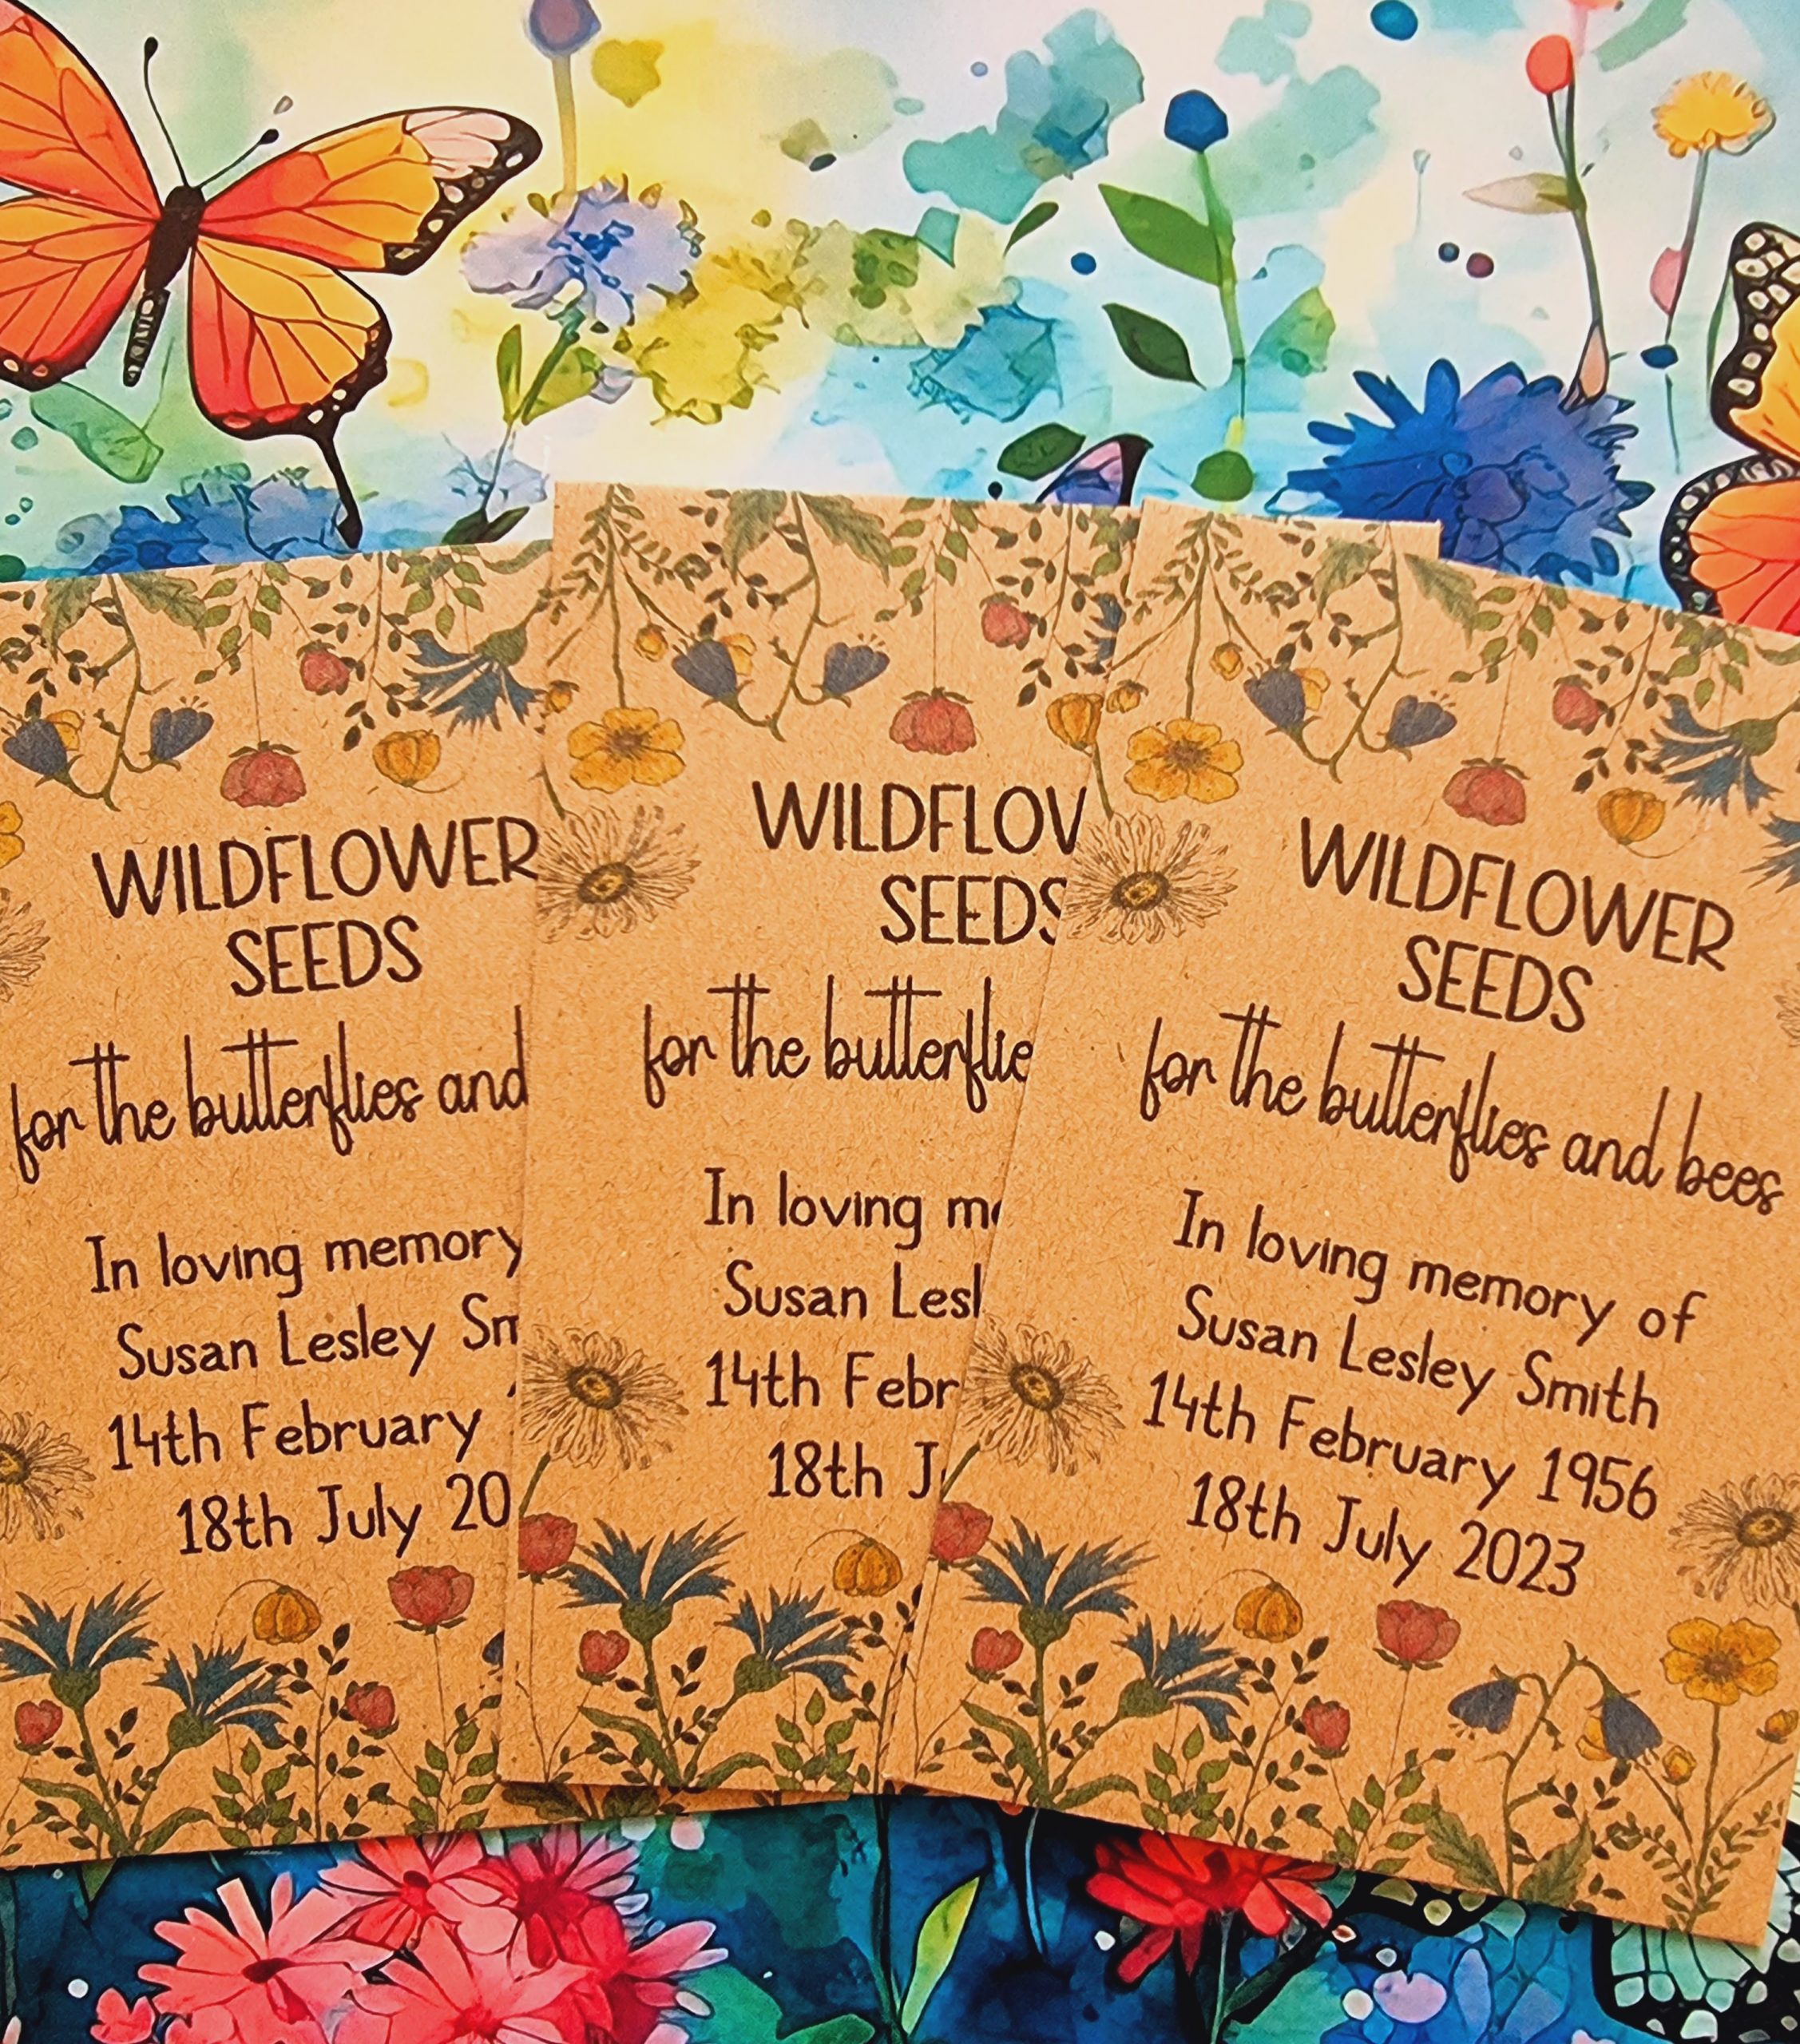 WILDFLOWER
SEEDS
for the butterflies and
In loving memory
Susan Lesley
14th February
18th July 20
SEEDS
for the
In loving
Susan
14th
18th
WILDFLOWER
SEEDS
for the butterflies and bees
In loving memory of
Susan Lesley Smith
14th February 1956
18th July 2023